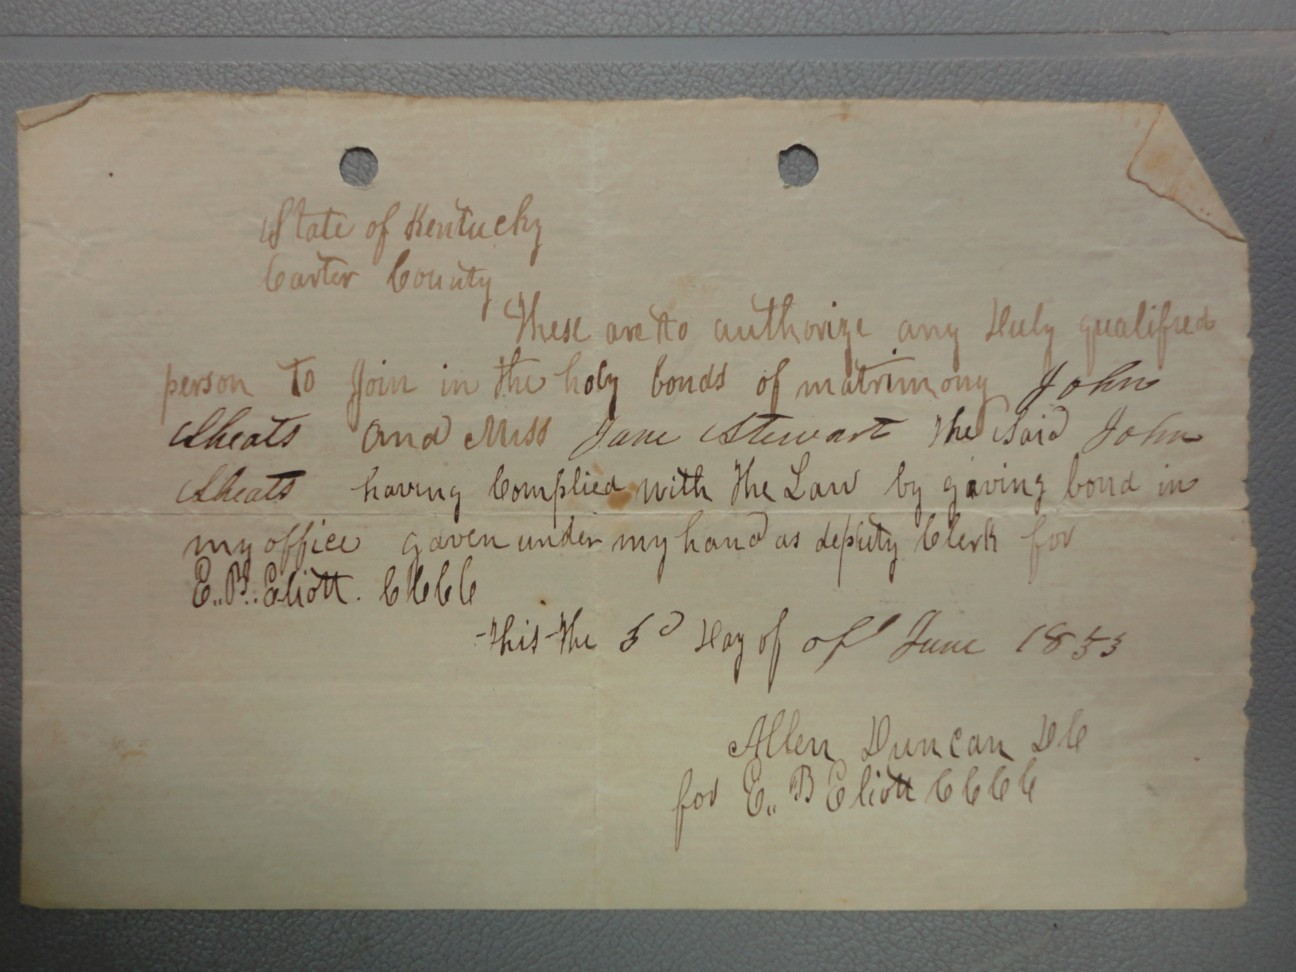 State of Kentucky
Carter County
These are to authorize any Duly qualified
person to Join in the holy bonds of matrimony John
Sheats and Miss Jane Stewart the Said John
Sheats having Complied with the Law by giving bond in
my office given under my hand as deputy Clerk for
E.. B.. Eliott. CCCC
This the 3d Day of of June 1853
Allen Duncan DC
for E.. B Eliott CCCC